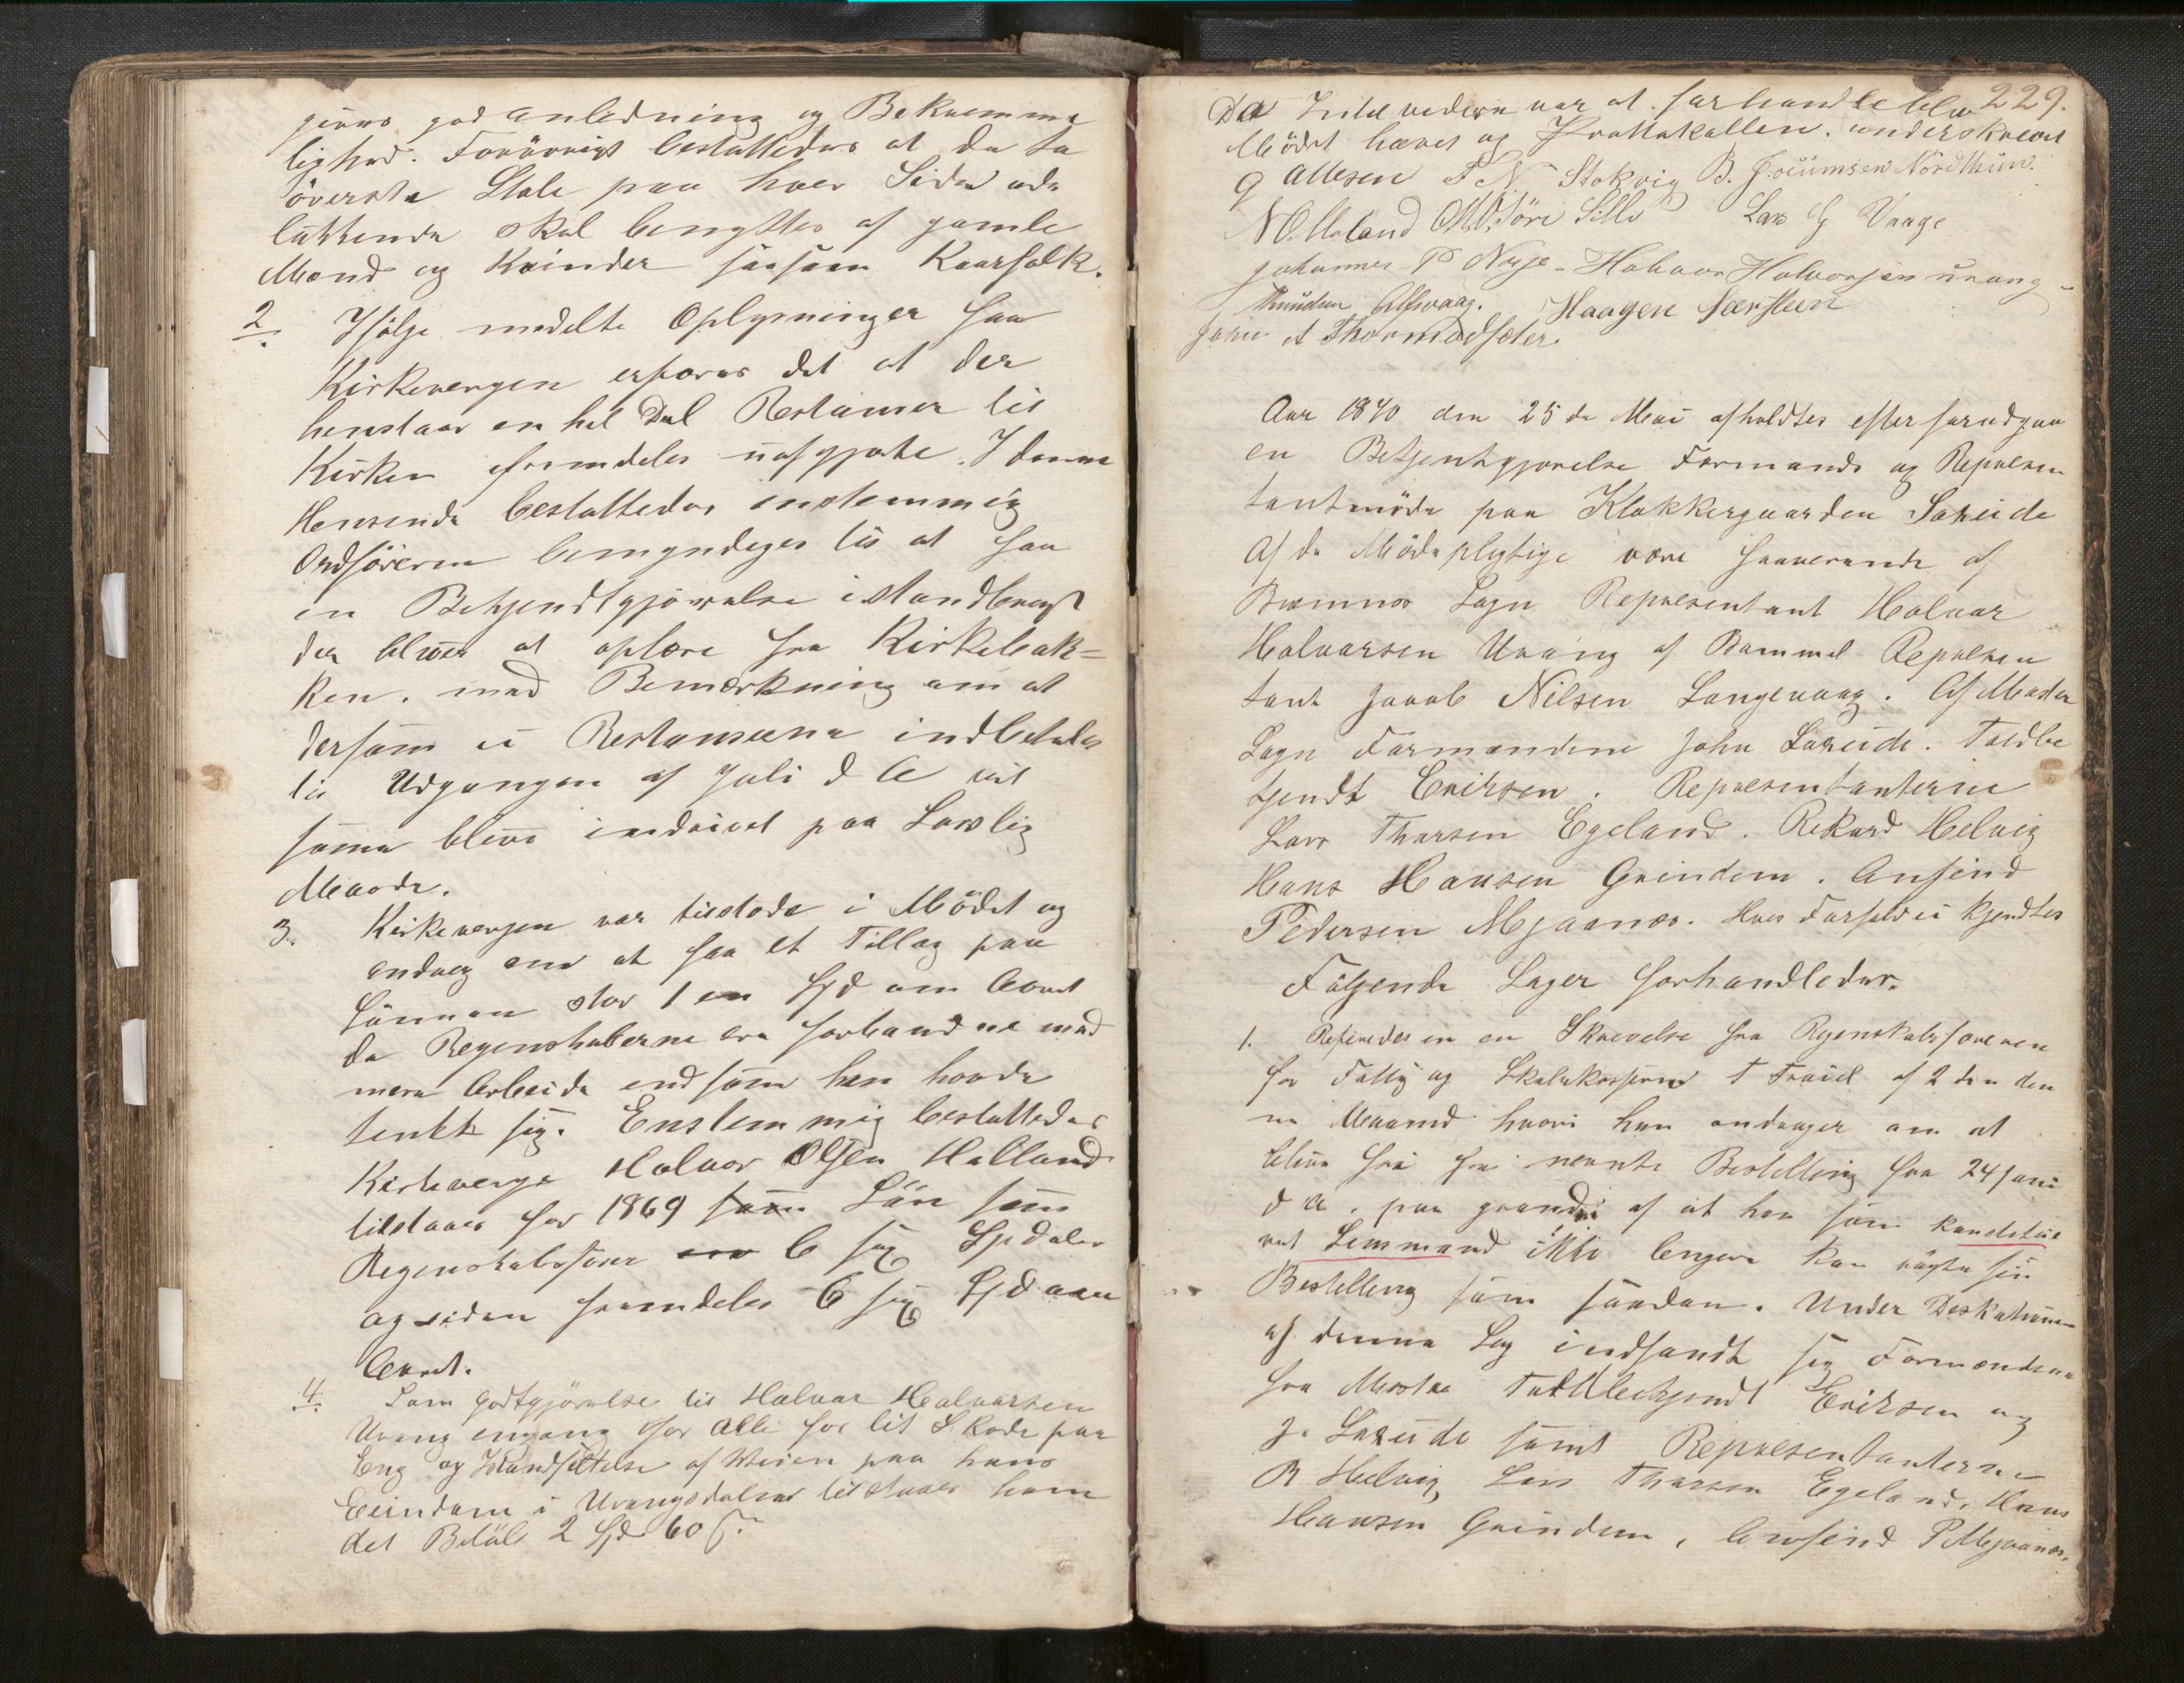 gives god anledning og Bekvemme
lighed. Forövrigt besluttedes at de to
överste Stole paa hver Side ude
lukkende skal benyttes af gamle
Mænd og Kvinder saasom Kaarfolk.
2. Ifölge meddelte Oplysninger fra
Kirkevergen erfares det at der
henstaar en hel Del Restanser til
Kirken fremdeles uafgjorte. I denne
Henseende besluttedes enstemmig
Ordföreren bemyndiges til at faa
en Bekjendtgjörelse istandbragt
der bliver at oplæse fra Kirkebak=
ken. med Bemærkning om at
dersom ei Restanserne indbetales
til Udgangen af Juli d A vil
samme blive inddrivet paa Lovlig
Maade.
3. Kirkevergen var tilstede i Mödet og
androg om at faa et Tillæg paa
Lönnen stor 1 en Spd om Aaret
da Regenskaberne ere forbundne med
mere Arbeide end som han havde
tenkt sig. Enstemmig besluttedes
Kirkeverge Halvor Olsen Halland
tilstaaes for 1869 som Lön som
Regenskabsförer 6 sex Spdaler
og siden fremdeles 6 sex Spd om
Aaret.
4. Som godtgjörelse til Halvor Halvorsen
Urang engang for Alle for lit Skade paa
Eng og Istandsettelse af Veien paa hans
Eiendom i Urangsdalen tilstaaes ham
det Belöb 2 Spd 60 s.
229.
Da Intet videre var at forhandle blev
Mödet hævet og Prottokollen. underskrevet
G Allesen T N Stokvig B. Joeumsen Nordthun.
N O. Moland Lars G Vaage
Johannes P Nesse. Halvor Halvorsen Urang
Knudsen Alfsvaag. Haagen Særsteen
John A Thormodsæter.
Aar 1870 den 25 de Mai afholdtes efter forudgaa
en Betjentgjorelse Formands og Represen
tantmöde paa Klokkergaarden Søreide
Af de Mödepligtige vare fraverende af
Bremnes Sogn Representant Halvor
Halvorsen Urang af Bømmel Represen
tant Jacob Nilsen Langevaag. Af Moster
Sogn Formændene John Søreide. Toldbe
tjendt Eriksen. Representanterne
Lars Thorsen Egeland. Rikard Helvig
Hans Hansen Grindem. Anfind
Pedersen Mjaanes. Hves Forfald ei kjendtes
Fölgende Sager forhandledes.
1. Refereredes en en Skrevelse fra Regenskabsföreren
for Fattig og Skolekassserne T Traael af 2 den den
ne Maaned hvori han andrager om at
blive fri fra nevnte Bestilling fra 24 Juni
d A. paa grund af at han som konstitue
ret Lensmand ikke lengere kan rögte sin
Bestilling som saadan. Under Diskutionen
af denne Sag indfandt sig Formændene
fra Moster Toldbetjendt Eriksen og
J. Søreide samt Representanterne
R Helvig Lars Thorsen Egeland, Hans
Hansen Grindem, Anfind P Mjaanes.